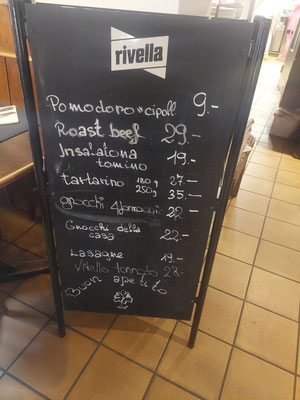 rivella
Pomodoro + cipoll 9.-
Roast beef 29.-
Insalatona 19.-
tomino
tartarino 180g 27.-
250g 35.-
gnocchi 4 formaggi 22.-
Gnocchi della
casa 22.-
Lasagne 19.-
Vitello tonnato 28.-
Buon apetito